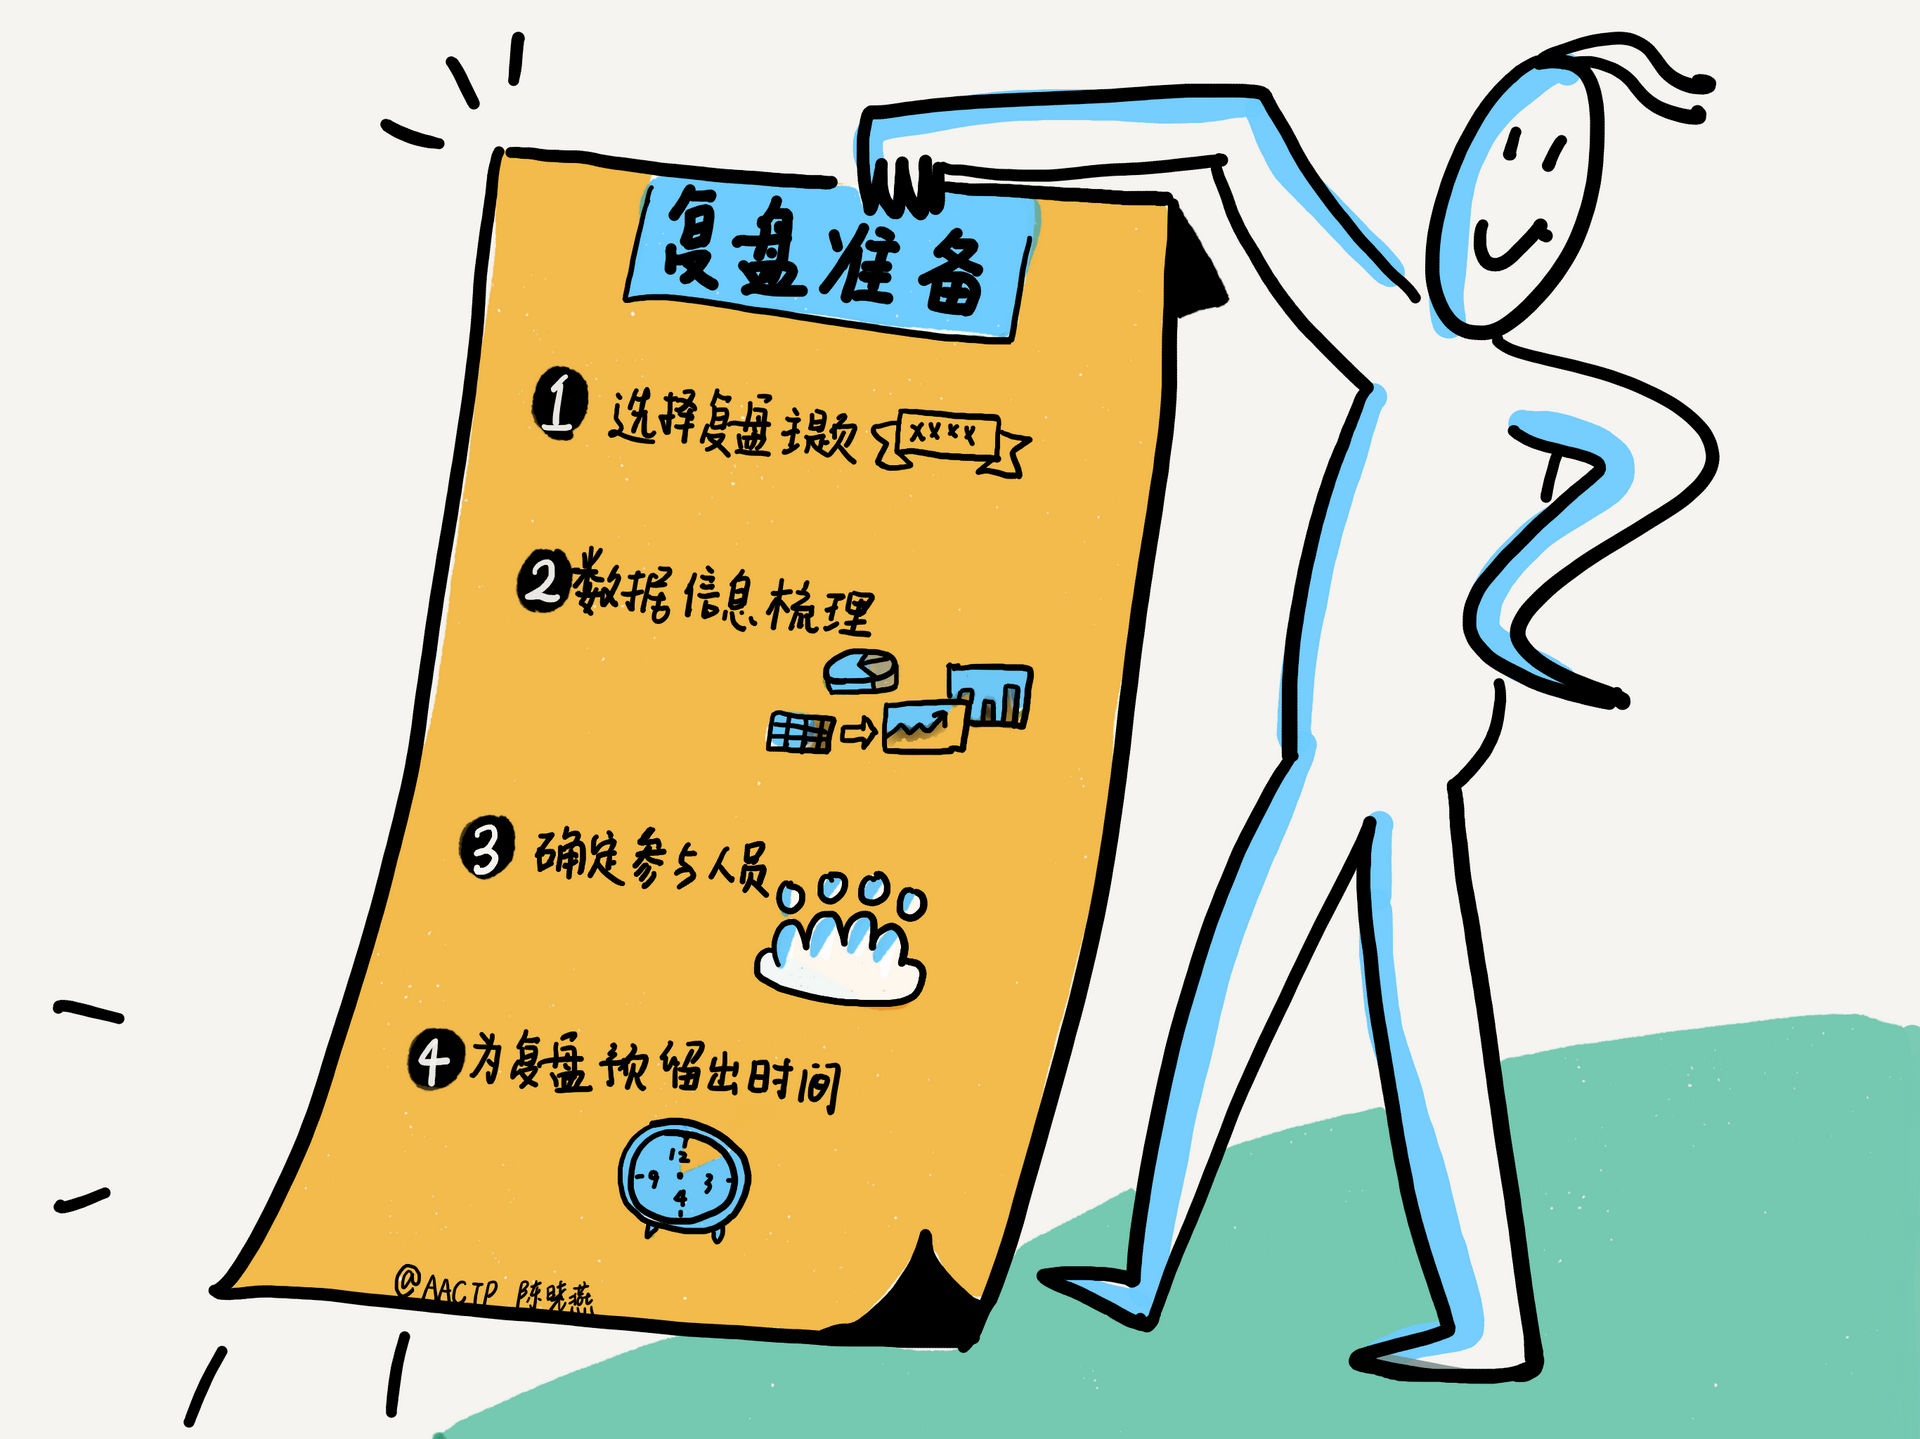 复盘准备
1 选择复盘主题 XXXX
2 数据信息梳理
3 确定参与人员
4 为复盘预留出时间
12
9 3
4
@AACTP 陈晓燕